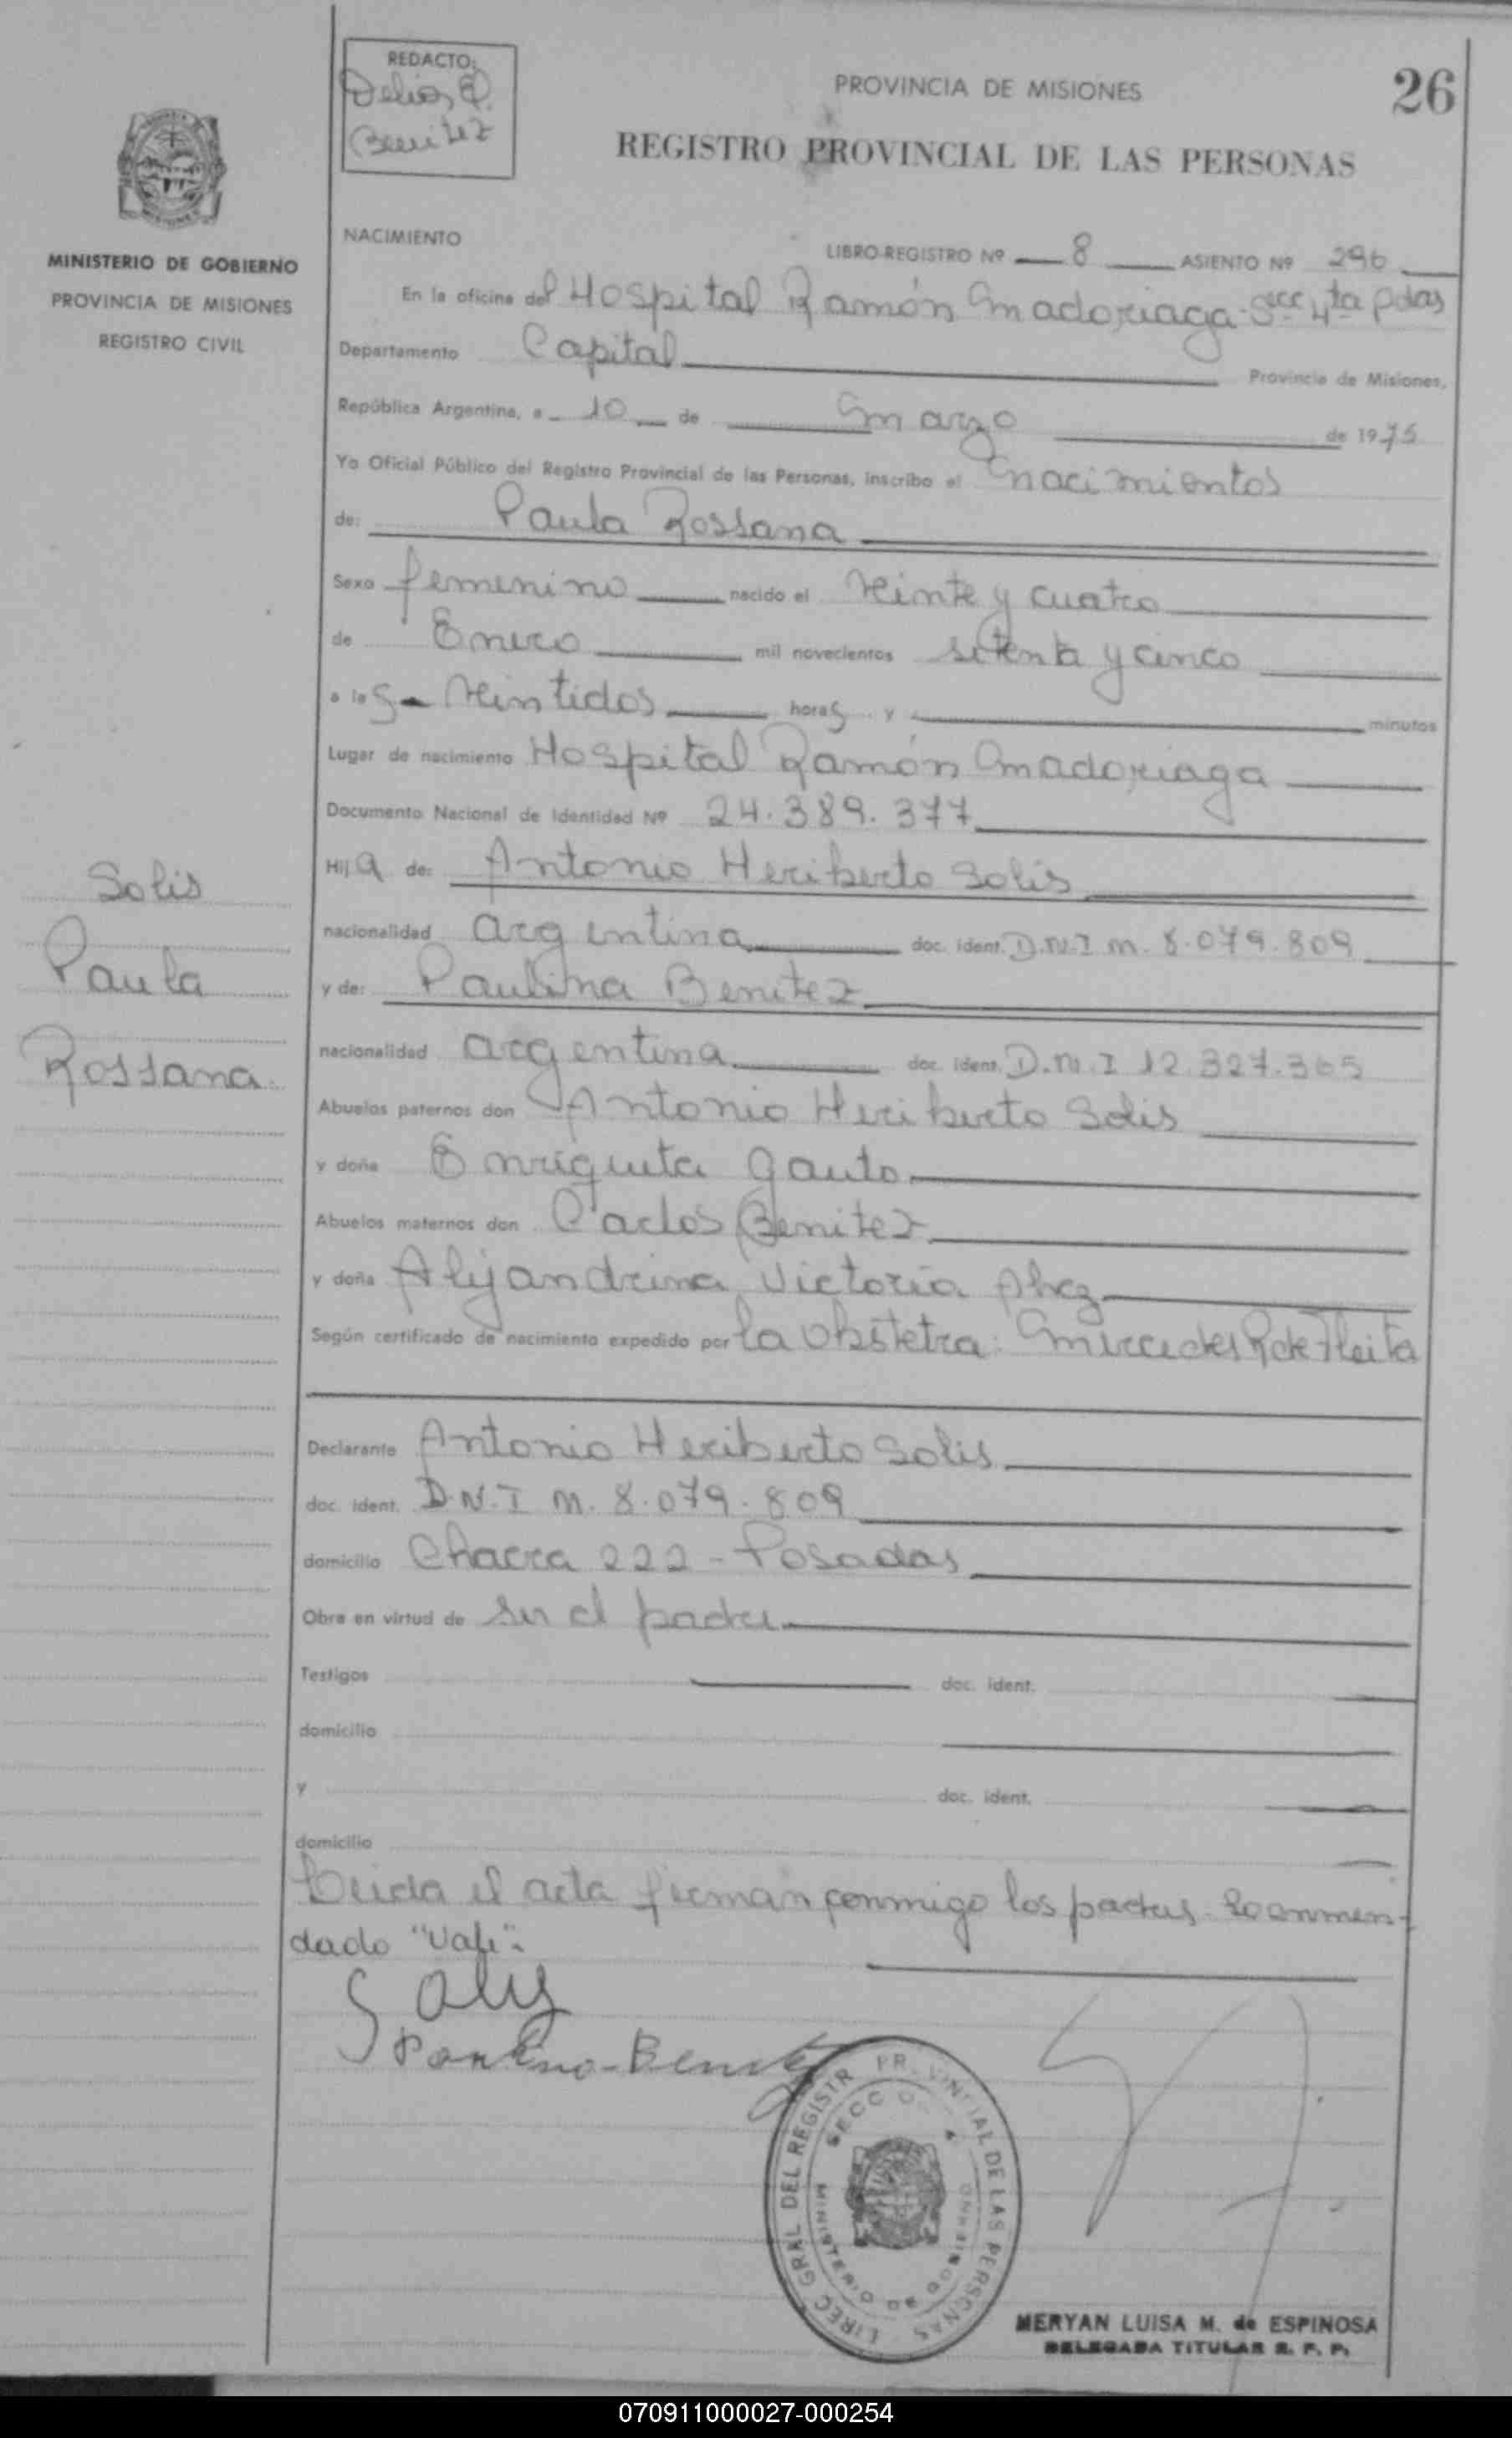 REDACTO:
Delia Q.
Benitez
PROVINCIA DE MISIONES
26
REGISTRO PROVINCIAL DE LAS PERSONAS
MINISTERIO DE GOBIERNO
PROVINCIA DE MISIONES
REGISTRO CIVIL
NACIMIENTO
LIBRO-REGISTRO Nº 8 ASIENTO Nº 296
En la oficina del Hospital Ramón Madariaga-Secc 4ta Pdas
Departamento Capital Provincia de Misiones,
República Argentina, a 10 de Marzo de 1975
Yo Oficial Público del Registro Provincial de las Personas, inscribo el nacimientos
de: Paula Rossana
Sexo femenino nacido el Veinte y cuatro
de Enero mil novecientos setenta y cinco
a las Veintidos horas y minutos
Lugar de nacimiento Hospital Ramón Madariaga
Documento Nacional de Identidad Nº 24.389.377
Hija de: Antonio Heriberto Solis
nacionalidad argentina doc. ident. D.N.I M. 8.079.809
y de: Paulina Benitez
nacionalidad argentina doc. ident. D.N.I 12.327.365
Abuelos paternos don Antonio Heriberto Solis
y doña Enriqueta Gauto
Abuelos maternos don Carlos Benitez
y doña Alejandrina Victoria
Según certificado de nacimiento expedido por la Obstetra: Mercedes R de Fleita
Solis
Paula
Rossana.
Declarante Antonio Heriberto Solis
doc. ident. D.N.I M. 8.079.809
domicilio Chacra 222 - Posadas
Obra en virtud de ser el padre
Testigos doc. ident.
domicilio
y doc. ident.
domicilio
Leida el acta firman conmigo los padres. Lo enmen-
dado "Vale".
Solis
Paulina-Benitez
DIREC GRAL DEL REGISTR PROVINCIAL DE LAS PERSONAS
MINISTERIO DE GOBIERNO
MERYAN LUISA M. de ESPINOSA
DELEGADA TITULAR R. P. P.
070911000027-000254